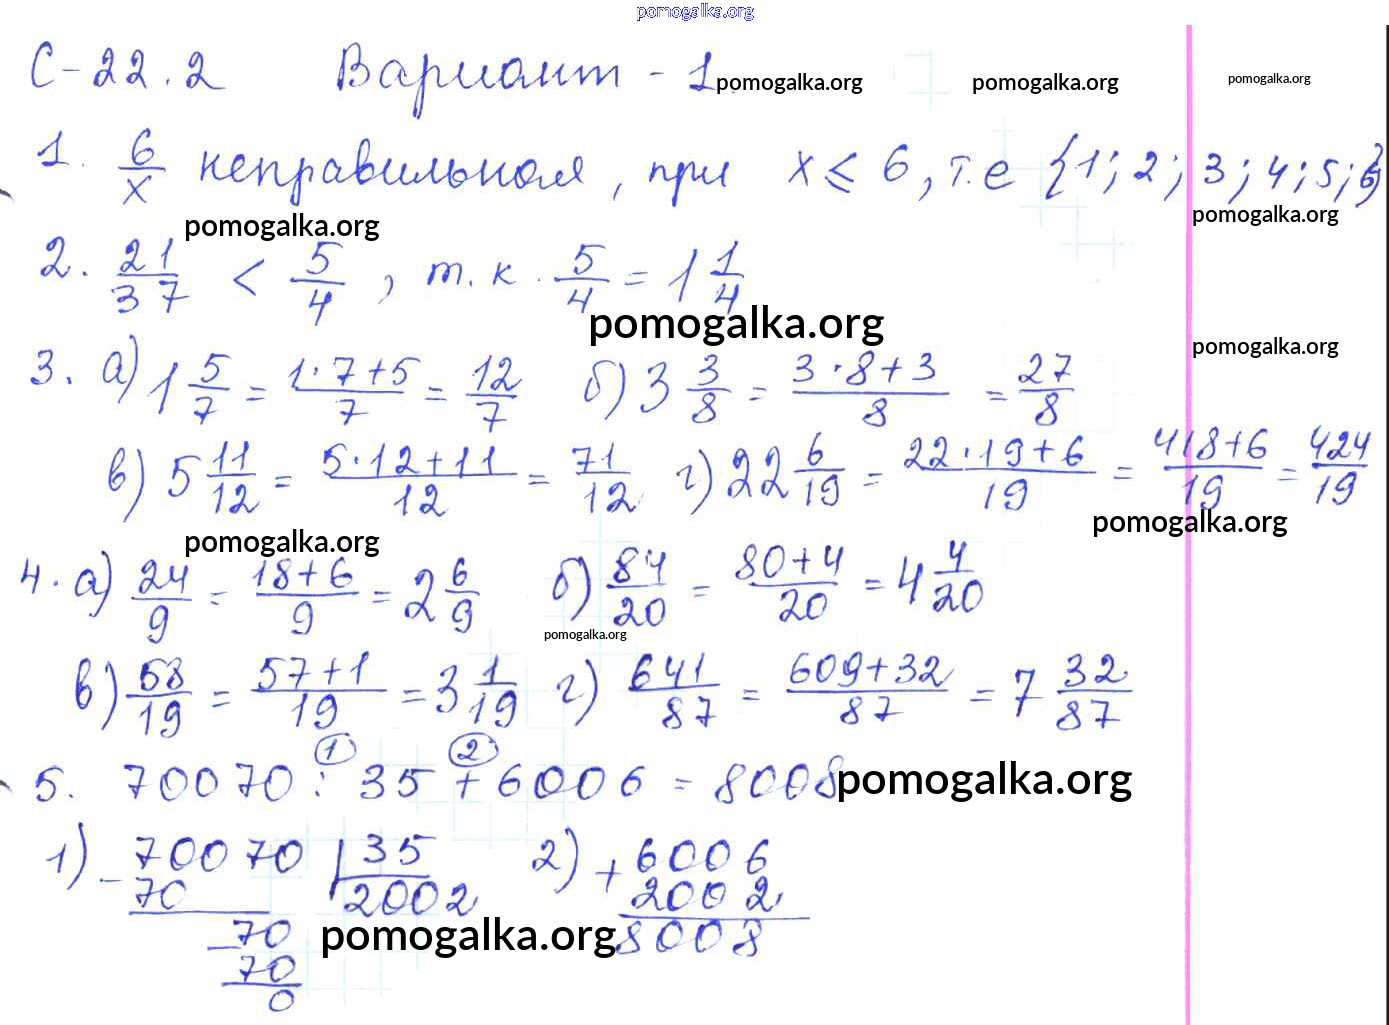 pomogalka.org
С-22.2 Вариант - 1. pomogalka.org pomogalka.org pomogalka.org
1. 6/x неправильная, при x ⩽ 6, т.е {1; 2; 3; 4; 5; 6}
pomogalka.org pomogalka.org
2. 21/37 < 5/4, т.к. 5/4 = 1 1/4
pomogalka.org
pomogalka.org
3. а) 1 5/7 = 1·7+5/7 = 12/7 б) 3 3/8 = 3·8+3/8 = 27/8
в) 5 11/12 = 5·12+11/12 = 71/12 г) 22 6/19 = 22·19+6/19 = 418+6/19 = 424/19
pomogalka.org pomogalka.org
4. а) 24/9 = 18+6/9 = 2 6/9 б) 84/20 = 80+4/20 = 4 4/20
pomogalka.org
в) 58/19 = 57+1/19 = 3 1/19 г) 641/87 = 609+32/87 = 7 32/87
1 2
5. 70070 : 35 + 6006 = 8008 pomogalka.org
1) - 70070 | 35 2) + 6006
70 2002 2002
- 70 pomogalka.org 8008
70
0